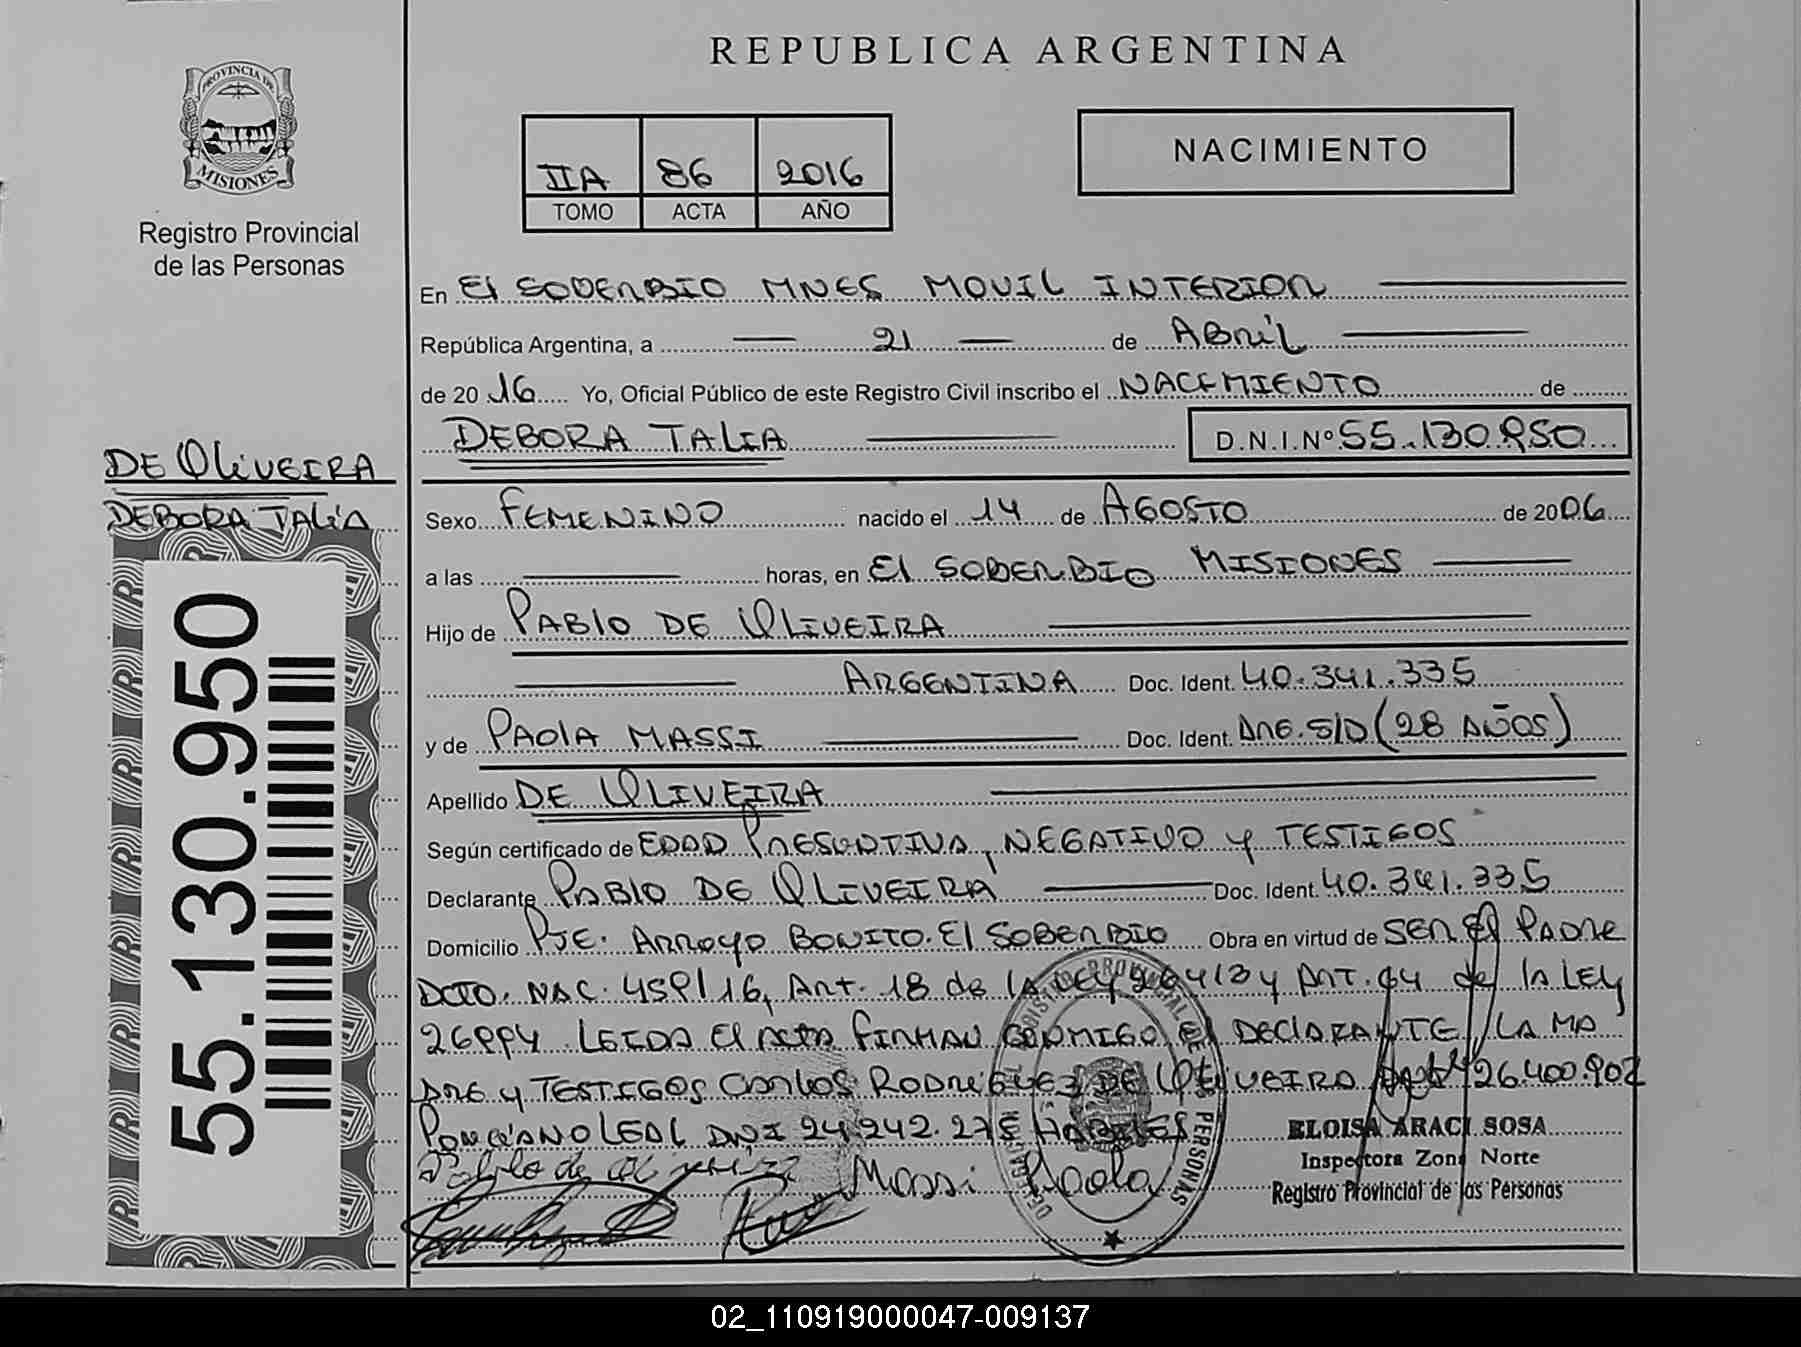 REPUBLICA ARGENTINA
PROVINCIA DE
MISIONES
Registro Provincial
de las Personas
IIA 86 2016
TOMO ACTA AÑO
NACIMIENTO
En El SOBERBIO MNES MOVIL INTERIOR
República Argentina, a 21 de Abril
de 2016 Yo, Oficial Público de este Registro Civil inscribo el NACIMIENTO de
DEBORA TALIA D.N.I.Nº 55.130.950
DE OLIVEIRA
DEBORA TALIA
55.130.950
Sexo FEMENINO nacido el 14 de AGOSTO de 2006
a las horas, en El SOBERBIO MISIONES
Hijo de PABLO DE OLIVEIRA
ARGENTINA Doc. Ident. 40.341.335
y de PAOLA MASSI Doc. Ident. ARG. S/D (28 AÑOS)
Apellido DE OLIVEIRA
Según certificado de EDAD PRESUNTIVA, NEGATIVO y TESTIGOS
Declarante PABLO DE OLIVEIRA Doc. Ident. 40.341.335
Domicilio PJE. ARROYO BONITO. El SOBERBIO Obra en virtud de SER El PADRE
DCTO. NAC. 459/16, Art. 18 de la LEY 26413 y ART. 94 de la LEY
26994 LEIDA El ACTA FIRMAN CONMIGO El DECLARANTE, LA MA
DRE y TESTIGOS CARLOS RODRIGUEZ DE OLIVEIRA 26.400.902
LEAL DNI 24.242.275 HABILES
Pablo de oliveira Massi Paola
REGISTRO PROVINCIAL DE LAS PERSONAS
ELOISA ARACI SOSA
Inspectora Zona Norte
Registro Provincial de las Personas
02_110919000047-009137